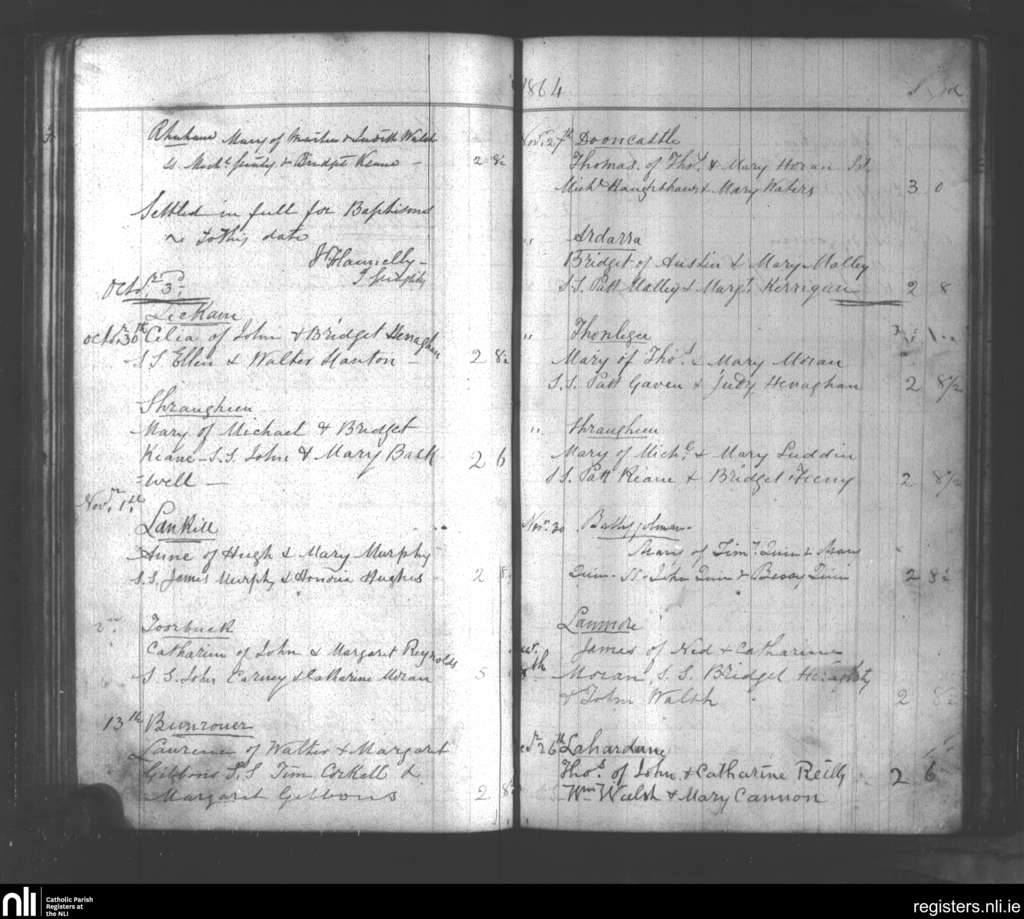 1864
Mary of Martin & Judith Walsh
SS. Michl & Bridget Keane - 2 8½
Settled in full for Baptisms
to this date
Octr 3rd
Leckam
Octr 30th Celia of John & Bridget Henaghan
S S Ellen & Walter Stanton - 2 8½
Shraugheen
Mary of Michael & Bridget
Keane - S.S. John & Mary Bask 2 6
=well -
Novr 1st
Lankill
Anne of Hugh & Mary Murphy
S.S. James Murphy & Honoria Hughes 2 8
Toorbuck
Catharine of John & Margaret Reynolds
S.S. John Carney & Catharine Moran 5
13th Bunrower
Laurence of Walter & Margaret
Gibbons S.S Tim Corkell &
Margaret Gibbons 2 8½
Nov. 27th Dooncastle
Thomas of Thos & Mary Horan SS.
Michl & Mary Waters 3 0
" Ardarra
Bridget of Austin & Mary Malley
S.S. Patt Malley & Margt Kerrigan 2 8
"
Mary of Thos & Mary Moran
S.S. Patt Gaven & Judy Henaghan 2 8½
" Shraugheen
Mary of Michl & Mary Luddin
SS Patt Keane & Bridget Heeny 2 8½
Novr 30
of Timy Quin & Mary
Quin - SS. John Quin & Bessy Quin 2 8½
Lanmore
James of Ned & Catharine
8th Moran S.S. Bridget Heraghty
& John Walsh 2 8½
26th Lahardane
Thos of John & Catharine Reilly 2 6
Wm Walsh & Mary Cannon
nli
Catholic Parish
Registers at
the NLI
registers.nli.ie